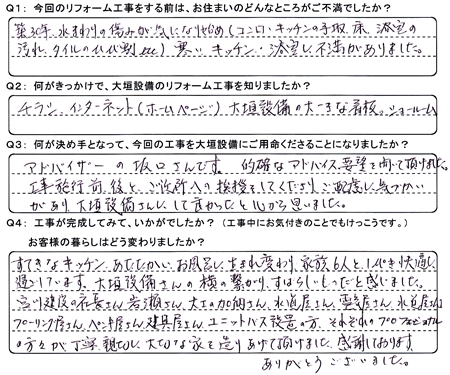 Q1: 今回のリフォーム工事をする前は、お住まいのどんなところがご不満でしたか?
築30年、水まわりの傷みが気になり始め(コンロ・キッチンの手取、床、浴室の
汚れ、タイルのハガレ割れetc)寒いキッチン・浴室に不満がありました。
Q2: 何がきっかけで、大垣設備のリフォーム工事を知りましたか?
チラシ インターネット(ホームページ)大垣設備の大きな看板、ショールーム
Q3: 何が決め手となって、今回の工事を大垣設備にご用命くださることになりましたか?
アドバイザーの坂口さんです。的確なアドバイス、要望を聞いて頂けました。
工事施行前、後と、ご近所への挨拶をしてくださりご配慮に気づかい
があり大垣設備さんにして良かったと心から思いました。
Q4: 工事が完成してみて、いかがでしたか?(工事中にお気付きのことでもけっこうです。)
お客様の暮らしはどう変わりましたか?
すてきなキッチン、あたたかいお風呂に生まれ変わり、家族6人とし快適に
過しています。大垣設備さんの横の繋がり、すばらしいものだと感じました。
宮川建設の社長さん、岩槻さん、大工の加納さん、水道屋さん、電気屋さん、水道屋さん
フローリング屋さん、ペンキ屋さん、建具屋さん、ユニットバス設置の方、それぞれのプロフェッショナル
の方々が丁寧、親切に大切な家を造りあげて頂けました。感謝しております。
ありがとうございました。